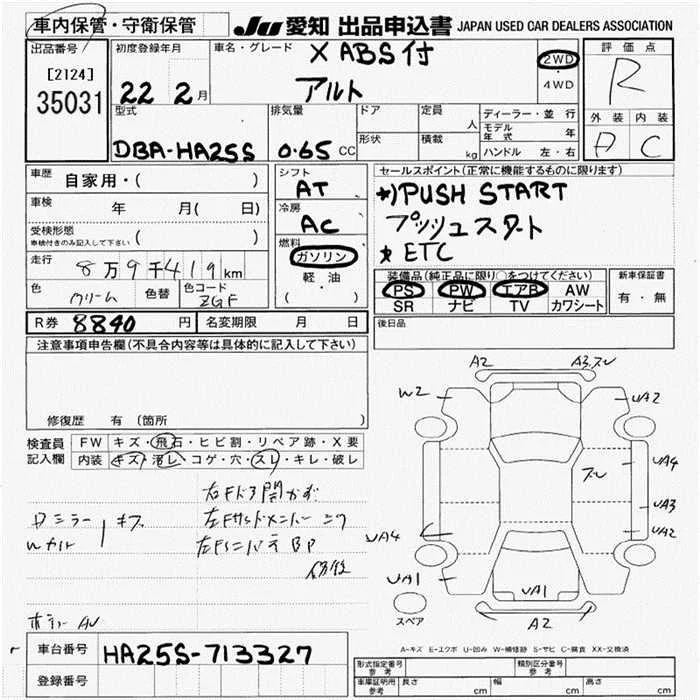 車内保管・守衛保管
JU 愛知 出品申込書 JAPAN USED CAR DEALERS ASSOCIATION
出品番号
[2124]
35031
初度登録年月
22 2月
車名・グレード
X ABS付
アルト
2WD
・
4WD
評価点
R
外装 内装
A C
型式
DBA-HA25S
排気量
0.65 CC
ドア
形状
定員 人
積載 kg
ディーラー・並行
モデル年式 年
ハンドル 左・右
車歴 自家用・( )
車検 年 月( 日)
受検形態
車検付きのみ記入して下さい ( )
走行 8万9千419km
色 クリーム 色替 色コード ZGF
シフト
AT
冷房
AC
燃料
ガソリン
軽・油
( )
セールスポイント(正常に機能するものに限ります)
*)PUSH START
プッシュスタート
* ETC
装備品(純正品に限り○をつけてください)
PS PW エアB AW
SR ナビ TV カワシート
新車保証書
有・無
R券 8840 円 名変期限 月 日
後日品
注意事項申告欄(不具合内容等は具体的に記入して下さい)
修復歴 有 (箇所 )
検査員記入欄
FW キズ・飛石・ヒビ割・リペア跡・X要
内装 キズ・汚レ・コゲ・穴・スレ・キレ・破レ
左Fドア開かず
左Fサイドメンバー
BP
修復
ミラー キズ
A2
W2
UA2
UA4
UA3
UA2
UA4
UA1
UA1
A2
スペア
A-キズ E-エクボ U-凹み W-補修跡 S-サビ C-腐食 XX-交換済
車台番号 HA25S-713327
登録番号
型式指定番号 参考
類別区分番号 参考
車庫証明用 参考 長さ cm 幅 cm 高さ cm